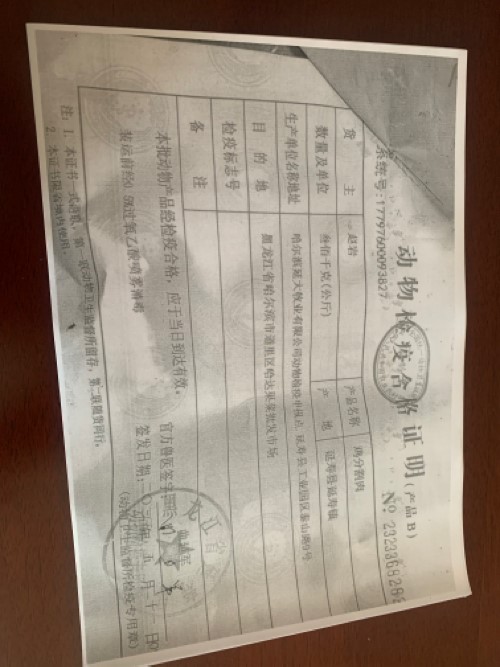 动物检疫合格证明(产品B)
系统号:17797600093827
№ 2323368282
货 主 赵岩 产品名称 鸡分割肉
数量及单位 叁佰千克(公斤) 产 地 延寿县延寿镇
生产单位名称地址 哈尔滨延大牧业有限公司动物检疫申报点 延寿县工业园区泰山路6号
目 的 地 黑龙江省哈尔滨市道里区哈达果菜批发市场
检疫标志号
备 注
本批动物产品经检疫合格,应于当日到达有效。
官方兽医签字:
签发日期: 五 月 十一 日
(动物卫生监督所检疫专用章)
注:1、本证书一式两联,第一联动物卫生监督所留存,第二联随货同行。
2、本证书限省境内使用。